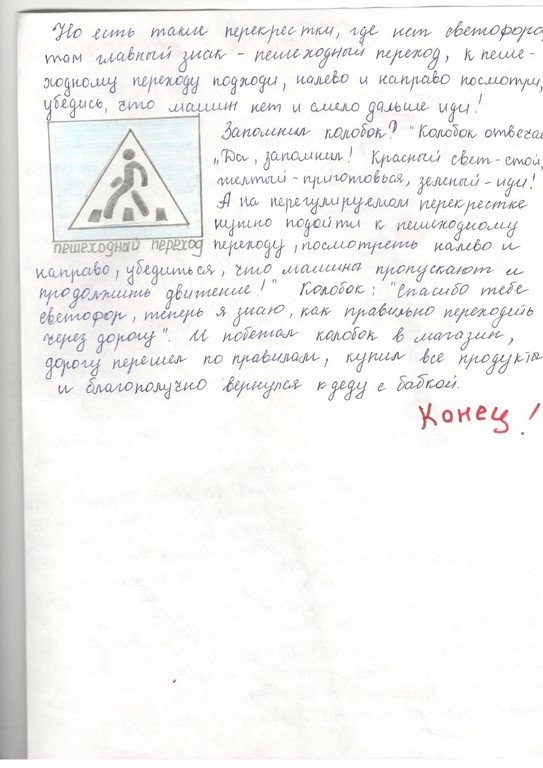 Но есть такие перекрестки, где нет светофоров,
там главный знак - пешеходный переход, к пеше-
ходному переходу подходи, налево и направо посмотри,
убедись, что машин нет и смело дальше иди!
Запомнил колобок? "Колобок отвечает
„Да, запомнил! Красный свет-стой,
желтый-приготовься, зеленый-иди!
А на перегулируемом перекрестке
нужно подойти к пешеходному
пешеходный переход
переходу, посмотреть налево и
направо, убедиться, что машины пропускают и
продолжить движение!" Колобок: "Спасибо тебе
светофор, теперь я знаю, как правильно переходить
через дорогу". И побежал колобок в магазин,
дорогу перешел по правилам, купил все продукты
и благополучно вернулся к деду с бабкой.
Конец!